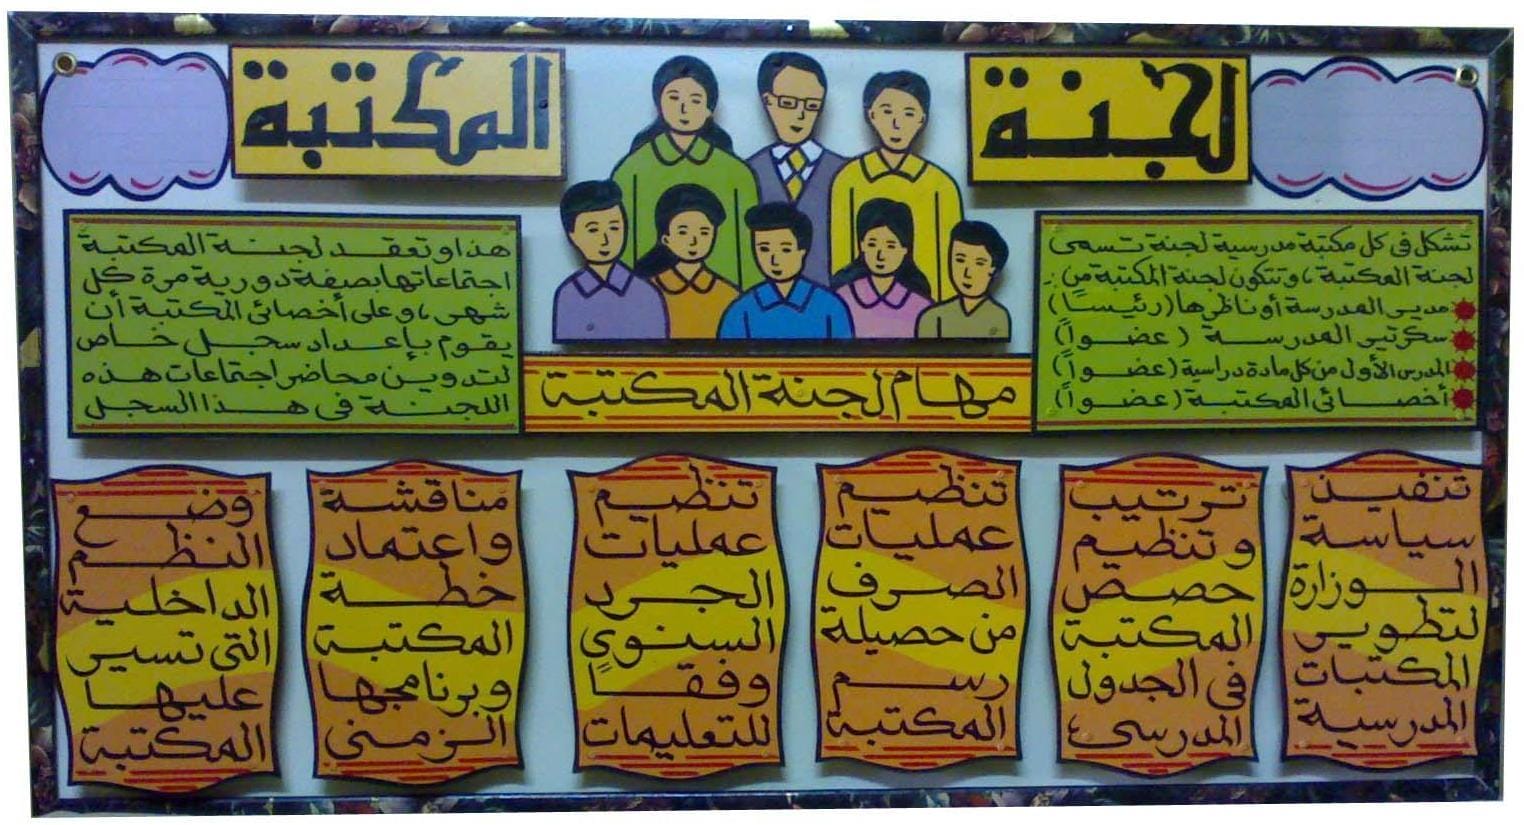 لجنة
المكتبة
تشكل فى كل مكتبة مدرسية لجنة تسمى
لجنة المكتبة ، وتتكون لجنة المكتبة من :
مدير المدرسة أو ناظرها (رئيسًا)
سكرتير المدرسة (عضواً)
المدرس الأول من كل مادة دراسية (عضواً)
أخصائى المكتبة (عضواً)
هذا وتعقد لجنة المكتبة
اجتماعاتها بصفة دورية مرة كل
شهر ، وعلى أخصائى المكتبة أن
يقوم بإعداد سجل خاص
لتدوين محاضر اجتماعات هذه
اللجنة فى هذا السجل
مهام لجنة المكتبة
تنفيذ
سياسة
الوزارة
لتطوير
المكتبات
المدرسية
ترتيب
وتنظيم
حصص
المكتبة
فى الجدول
المدرسى
تنظيم
عمليات
الصرف
من حصيلة
رسم
المكتبة
تنظيم
عمليات
الجرد
السنوي
وفقاً
للتعليمات
مناقشة
واعتماد
خطة
المكتبة
وبرنامجها
الزمنى
وضع
النظم
الداخلية
التى تسير
عليها
المكتبة